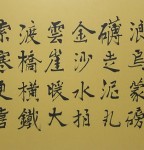 浪烏蒙磅
礴走泥丸
金沙水拍
雲崖暖大
渡橋橫鐵
索寒更喜